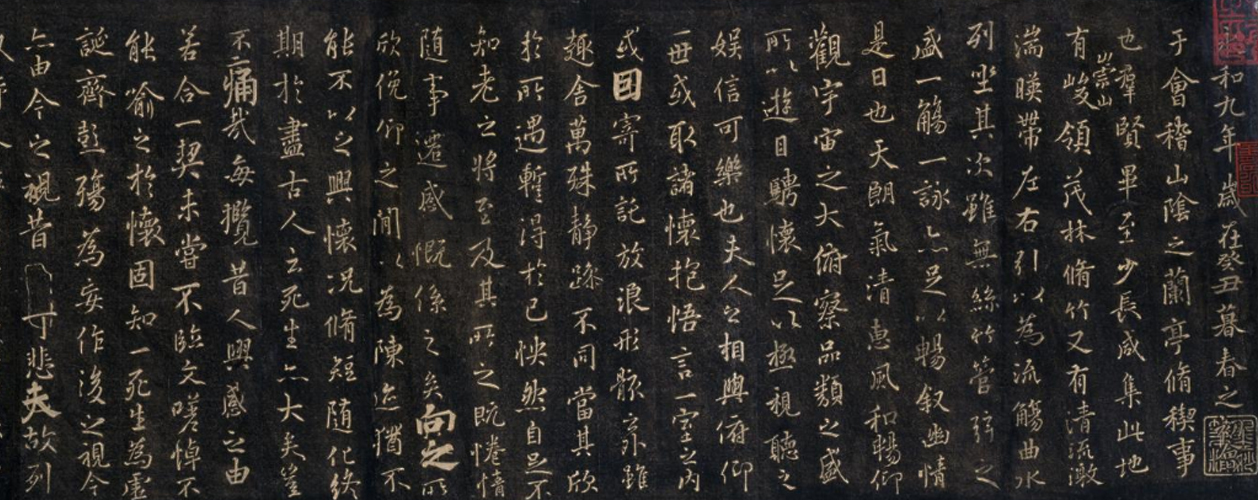 和九年歲在癸丑暮春之
于會稽山陰之蘭亭脩稧事
也羣賢畢至少長咸集此地
有崇山峻領茂林脩竹又有清流激
湍暎帶左右引以為流觴曲水
列坐其次雖無絲竹管弦之
盛一觴一詠亦足以暢叙幽情
是日也天朗氣清惠風和暢仰
觀宇宙之大俯察品類之盛
所以遊目騁懷足以極視聽之
娛信可樂也夫人之相與俯仰
一世或取諸懷抱悟言一室之內
或因寄所託放浪形骸之外雖
趣舍萬殊静躁不同當其欣
於所遇蹔得於己怏然自足不
知老之將至及其所之既惓情
随事遷感慨係之矣向之所
欣俛仰之間以為陳迹猶不
能不以之興懷况脩短随化終
期於盡古人云死生亦大矣豈
不痛哉每攬昔人興感之由
若合一契未嘗不臨文嗟悼不
能喻之於懷固知一死生為虛
誕齊彭殤為妄作後之視今
亦由今之視昔 悲夫故列